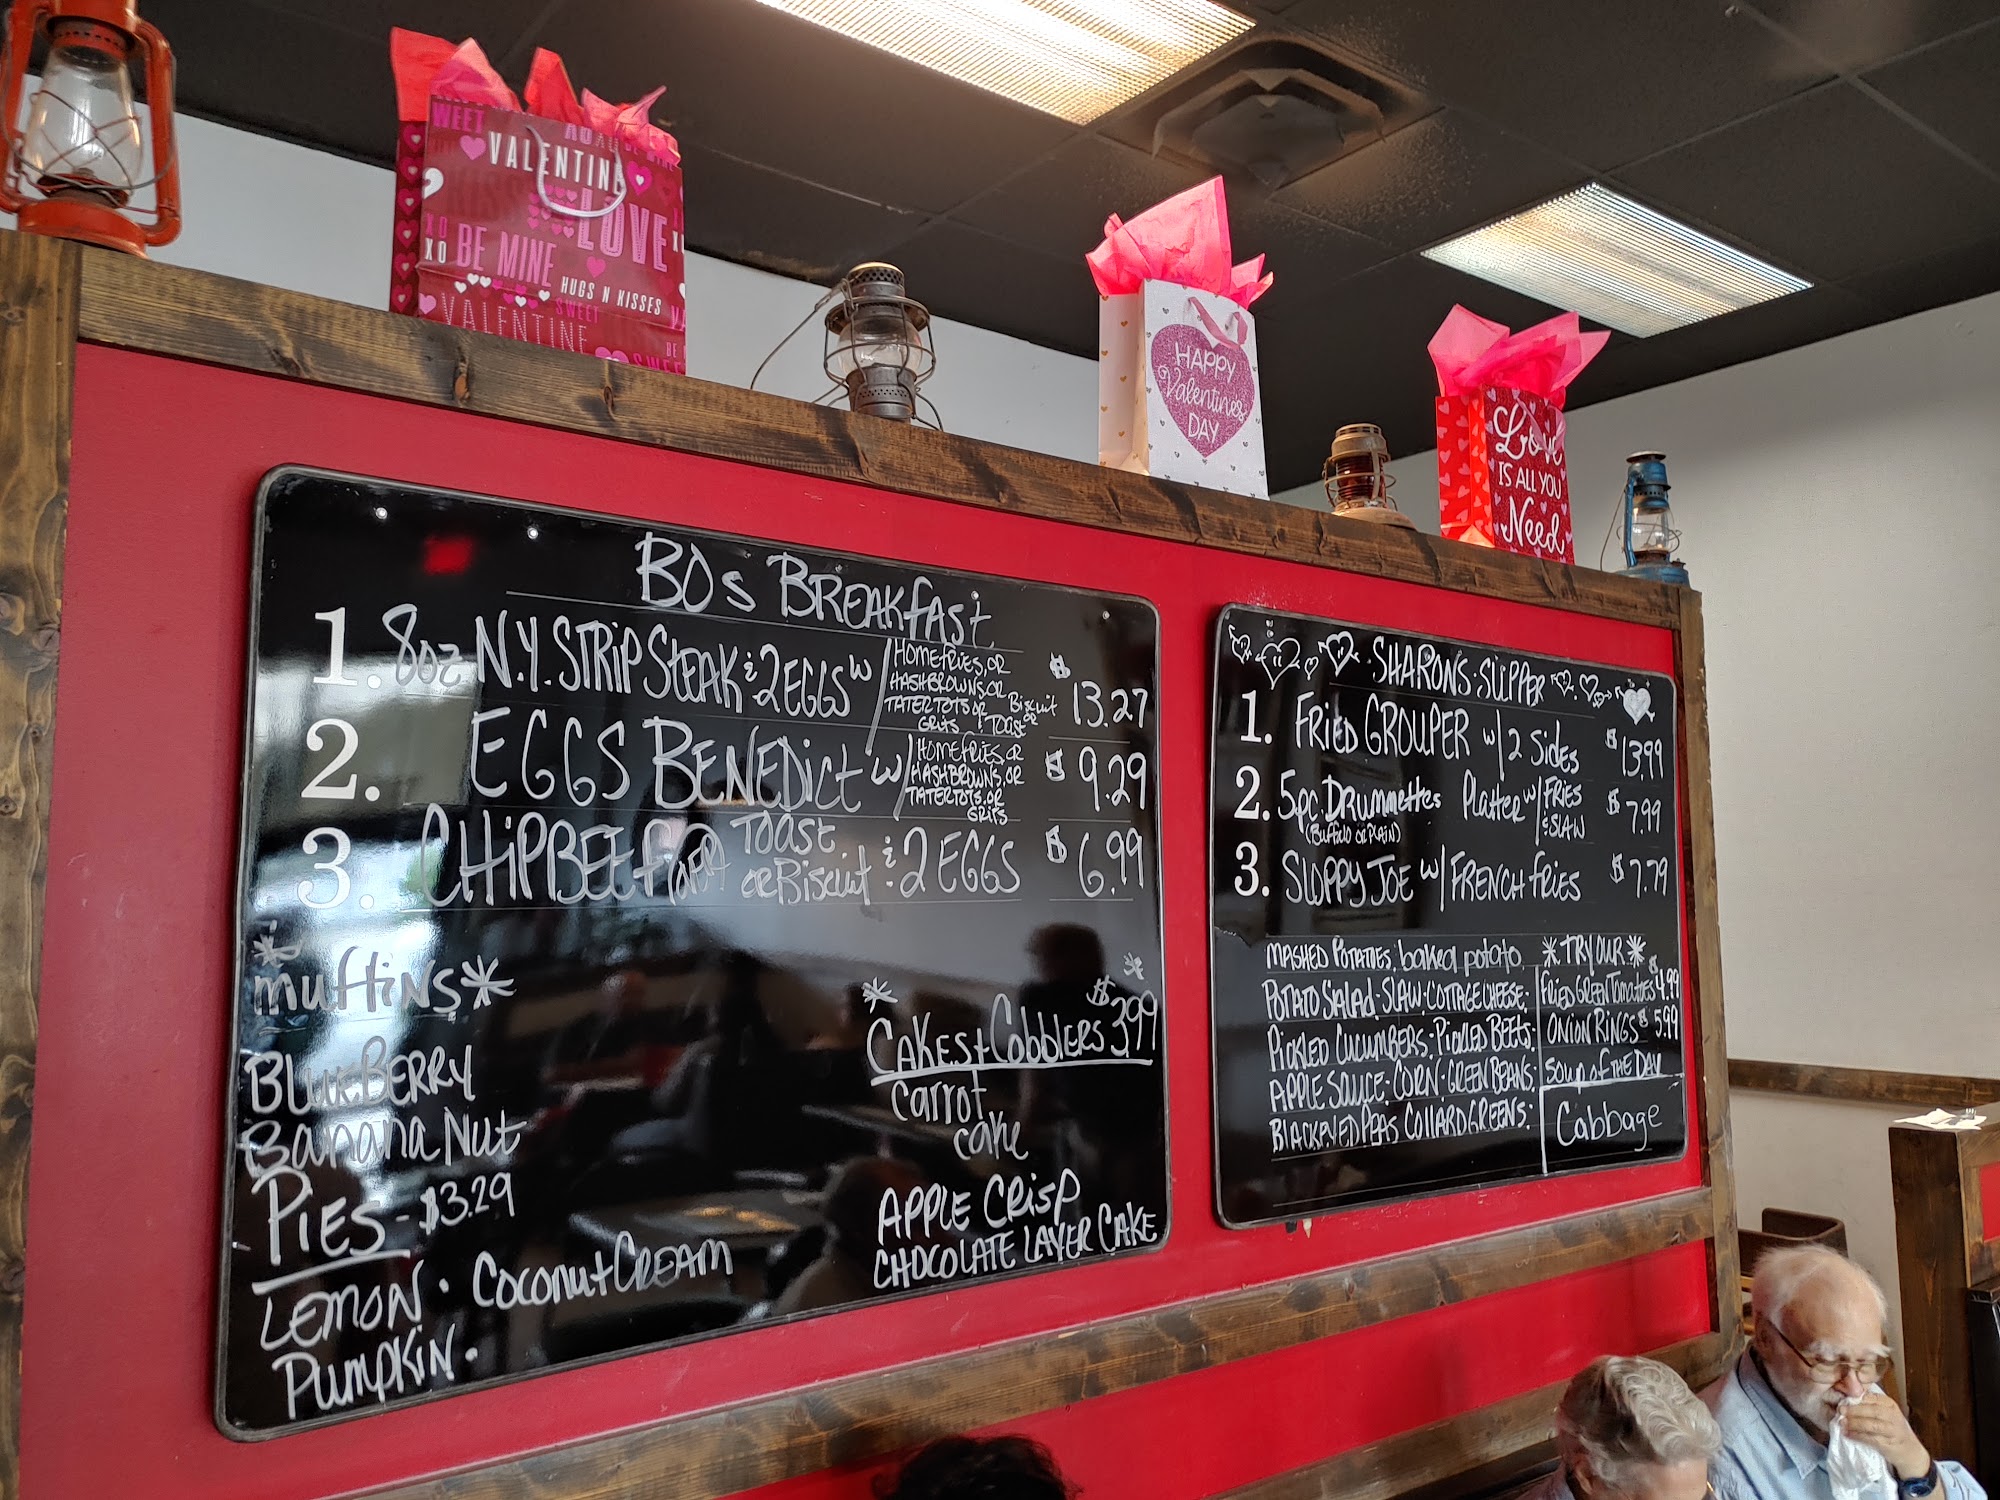 WEET
XO
VALENTINE
LOVE
XO
XO BE MINE
HUGS N KISSES
SWEET
VALENTINE
BE
SWEE
HAPPY
Valentines
DAY
Love
IS ALL YOU
Need
BOs BREAKfAST
1. 8oz N.Y. STRIP STEAK & 2 EGGS w/ HOMEFRIES, OR HASHBROWNS, OR TATER TOTS OR GRITS & TOAST OR BISCUIT $13.27
2. EGGS BENEDICT w/ HOMEFRIES, OR HASHBROWNS, OR TATERTOTS, OR GRITS $9.29
3. CHIPBEEF TOAST OR BISCUIT & 2 EGGS $6.99
* muffins *
BLUEBERRY
Banana Nut
PIES - $3.29
LEMON · Coconut CREAM
Pumpkin ·
* Cakes + Cobblers $3.99 *
carrot
cake
APPLE CRISP
CHOCOLATE LAYER CAKE
SHARONS · SUPPER
1. FRIED GROUPER w/ 2 Sides $13.99
2. 5pc. DRUMMETTES Platter w/ FRIES & SLAW $7.99
(Buffalo or Plain)
3. SLOPPY JOE w/ FRENCH FRIES $7.79
MASHED POTATOES, baked potato
POTATO SALAD · SLAW · COTTAGE CHEESE ·
PICKLED CUCUMBERS · PICKLED BEETS ·
APPLE SAUCE · CORN · GREEN BEANS ·
BLACKEYED PEAS COLLARD GREENS :
* TRY OUR *
FRIED GREEN TOMATOES $4.99
ONION RINGS $5.99
SOUP of THE DAY
Cabbage